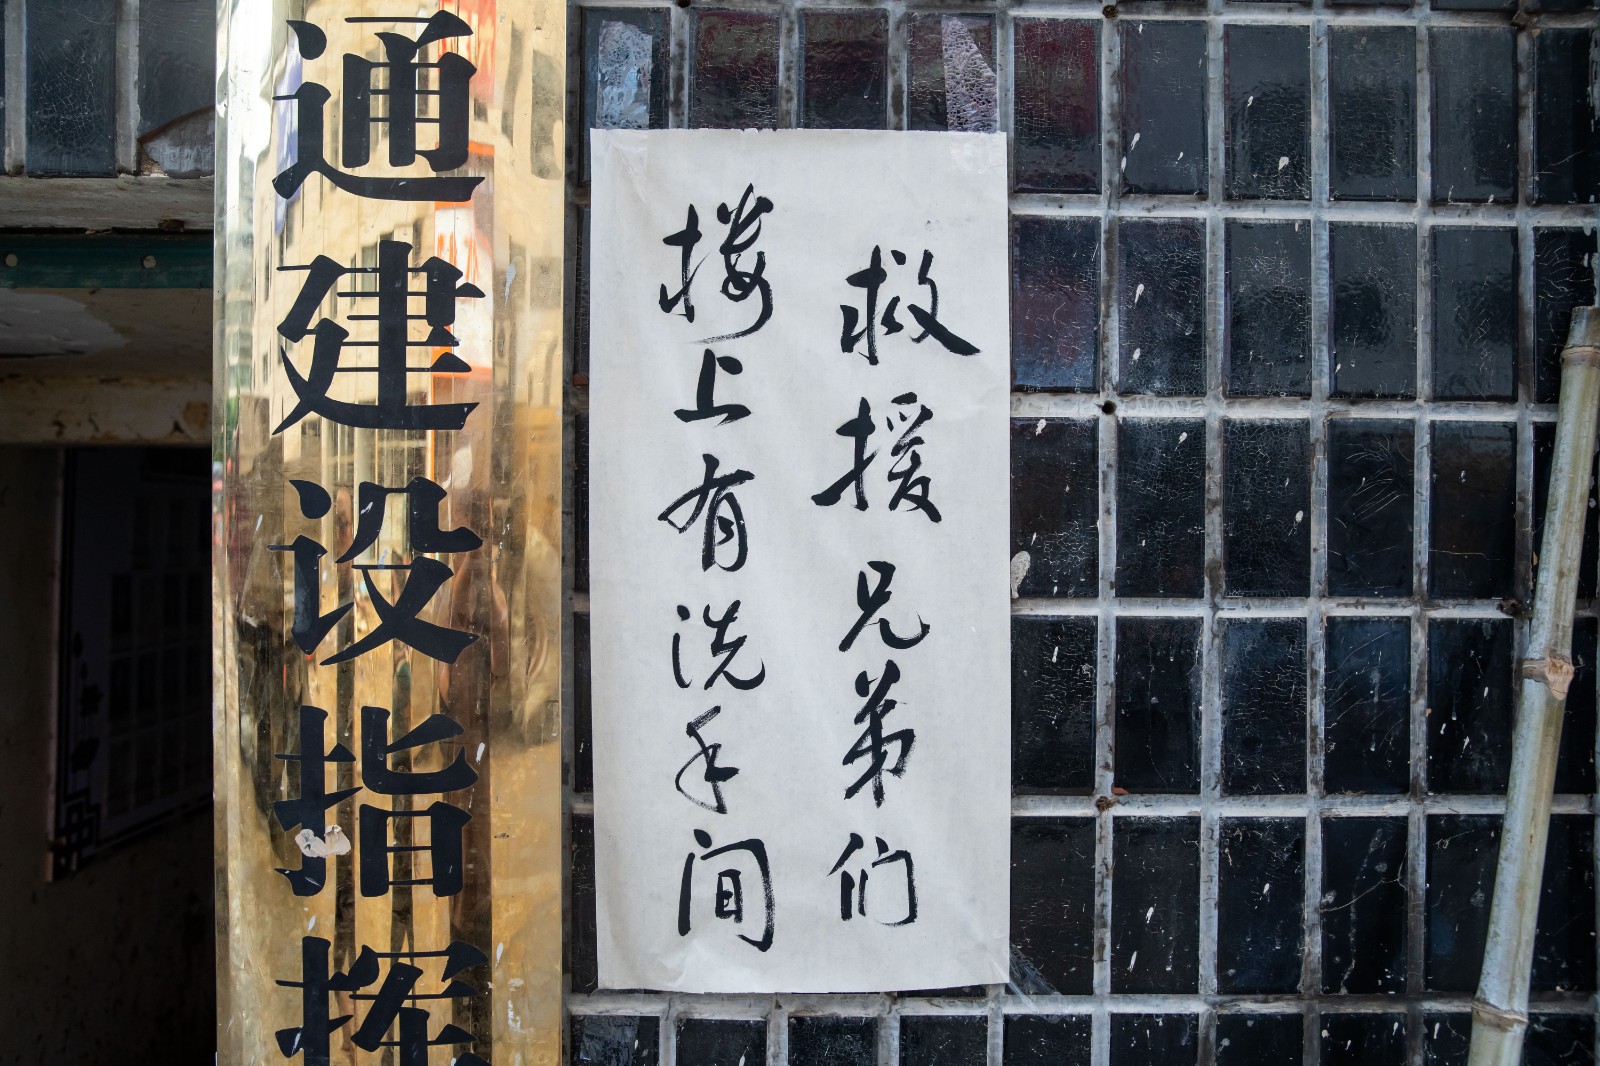 通建设指挥
救援兄弟们
楼上有洗手间